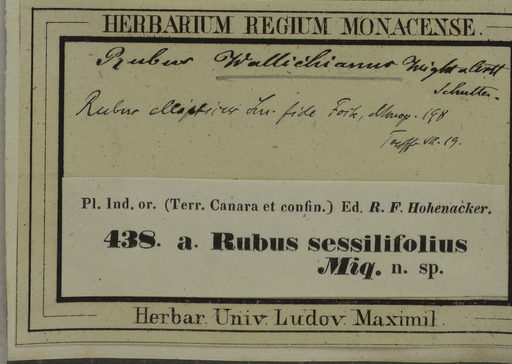 HERBARIUM REGIUM MONACENSE.
Rubus Wallichianus Wight & Arnott
Rubus ellipticus Sm. fide Focke, Monogr. 198
VII. 19.
Pl. Ind. or. (Terr. Canara et confin.) Ed. R. F. Hohenacker.
438. a. Rubus sessilifolius
Miq. n. sp.
Herbar. Univ. Ludov. Maximil.